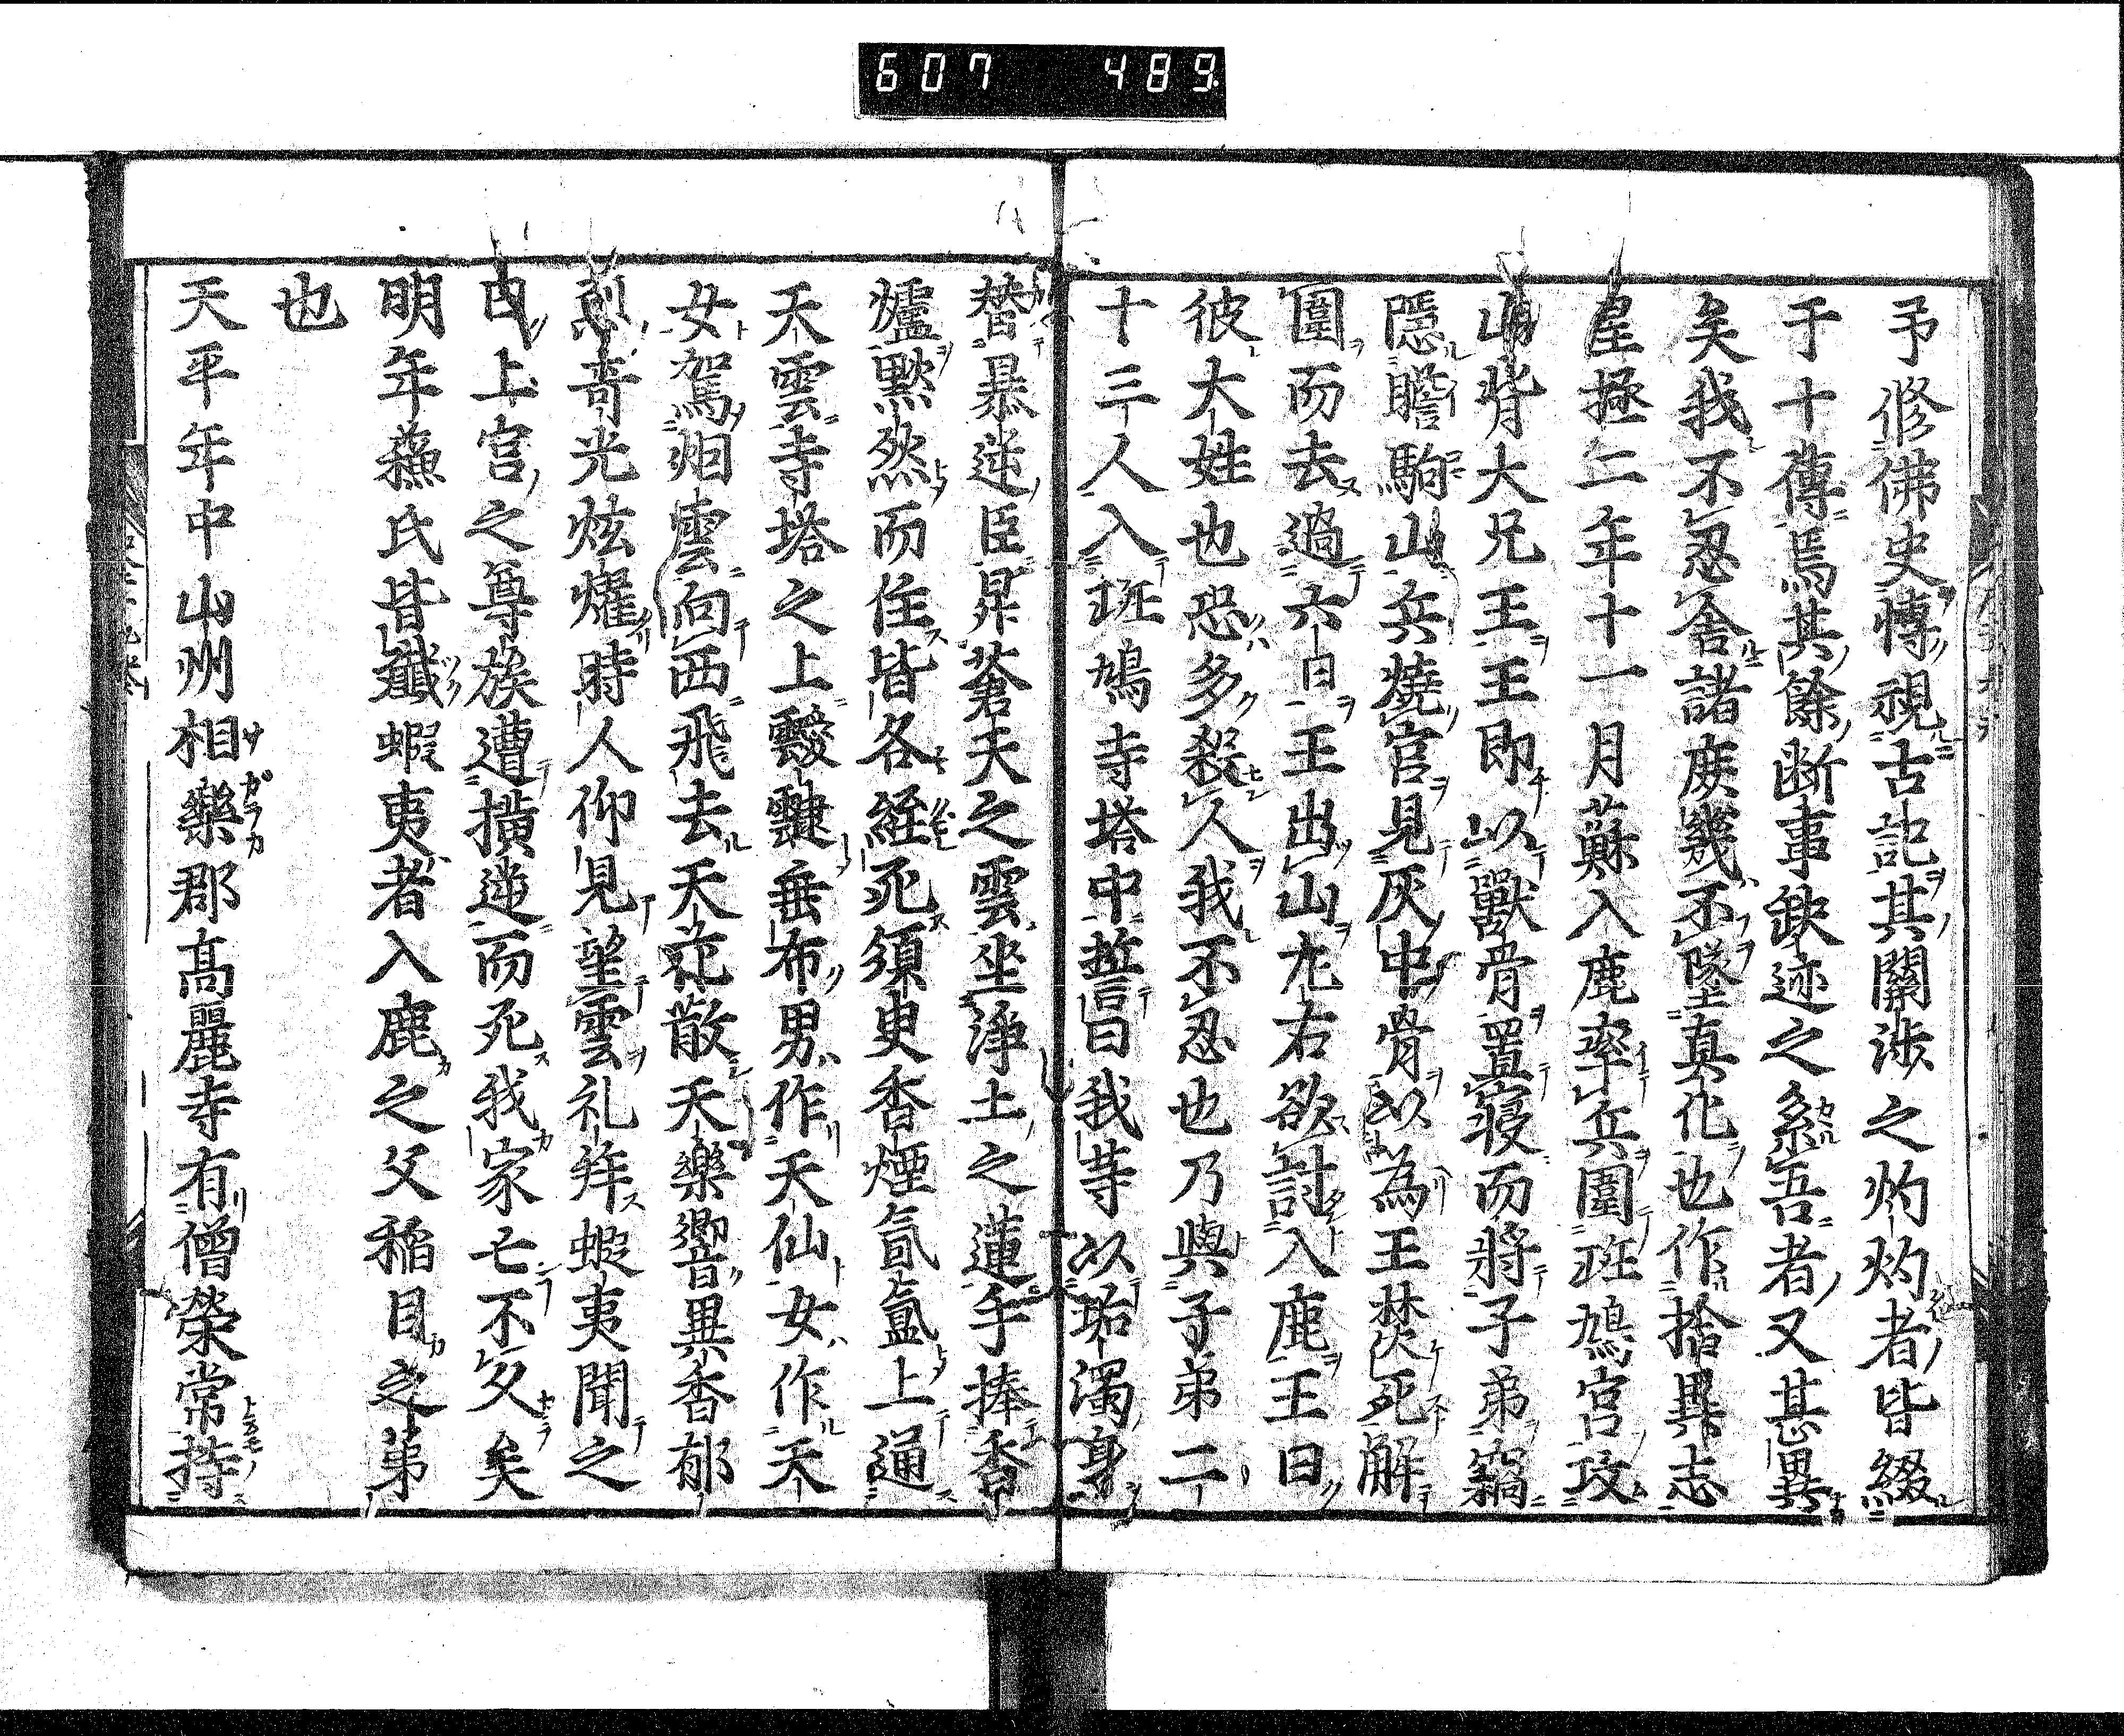 607 489
予修佛史博視古記其關渉之灼灼者皆綴
于十傳焉其餘断事缺迹之系吾者又甚異
矣我不忍舎諸庻幾不墜真化也作拾異志
皇極二年十一月蘇入鹿率兵圍斑鳩宮攻
山背大兄王王即以獸骨置寝而將子弟竊
隱膽駒山兵燒宮見灰中骨以為王焚死解
圍而去過六日王出山左右欲討入鹿王曰
彼大姓也恐多殺人我不忍也乃與子弟二
十三人入斑鳩寺塔中誓曰我等以垢濁身
替暴逆臣昇蒼天之雲坐浄土之蓮手捧香
爐黙然而住皆各經死須臾香煙氤氳上通
天雲寺塔之上靉靆垂布男作天仙女作天
女駕烟雲向西飛去天花散天樂響異香郁
烈奇光炫燿時人仰見望雲礼拜蝦夷聞之
曰上官之尊族遭横逆而死我家亡不久矣
明年蘓氏皆殱蝦夷者入鹿之父稲目之第
也
天平年中山州相樂郡高麗寺有僧榮常持